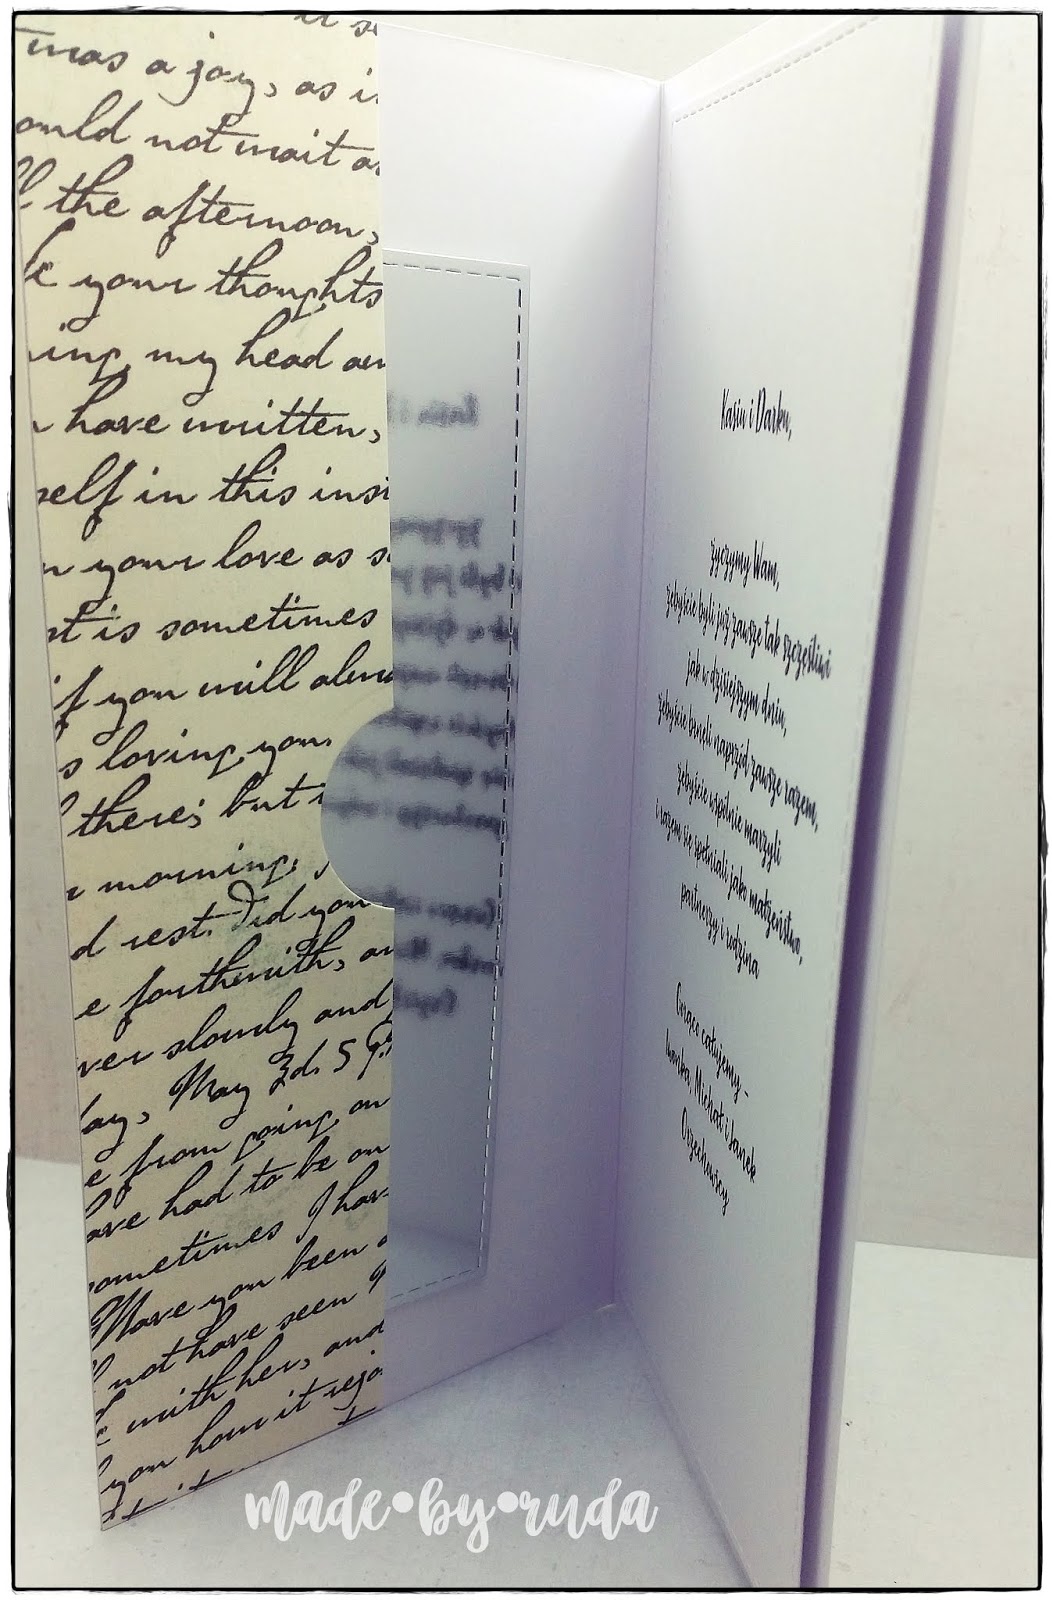 it s
tmas a joy, as i
ould not wait a
the afternoon,
your thoughts
my head an
have written,
self in this insi
your love as s
is sometimes
if you will alwa
s loving you.
there; but
morning,
d rest. Did you
e forthwith, an
ver slowly and
lay, May 3d. 5
e from going on
ave had to be on
sometimes I hav
Have you been
not have seen
with her, and
you how it rejo
Kasiu i Darku,
życzymy Wam,
żebyście byli już zawsze tak szczęśliwi
jak w dzisiejszym dniu,
żebyście brnęli naprzód zawsze razem,
żebyście wspólnie marzyli
i razem się spełniali, jako małżeństwo,
partnerzy i rodzina
Gorąco całujemy -
Iwonka, Michał i Janek
Orzechowscy
made•by•ruda